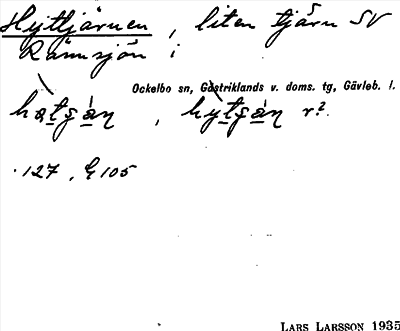 Hyttjärnen, liten tjärn SV
Rämsjön i
Ockelbo sn, Gästriklands v. doms. tg, Gävleb. l.
hætʂàn̥, hỳtʂàn̥ r?
127, G 105
LARS LARSSON 1935